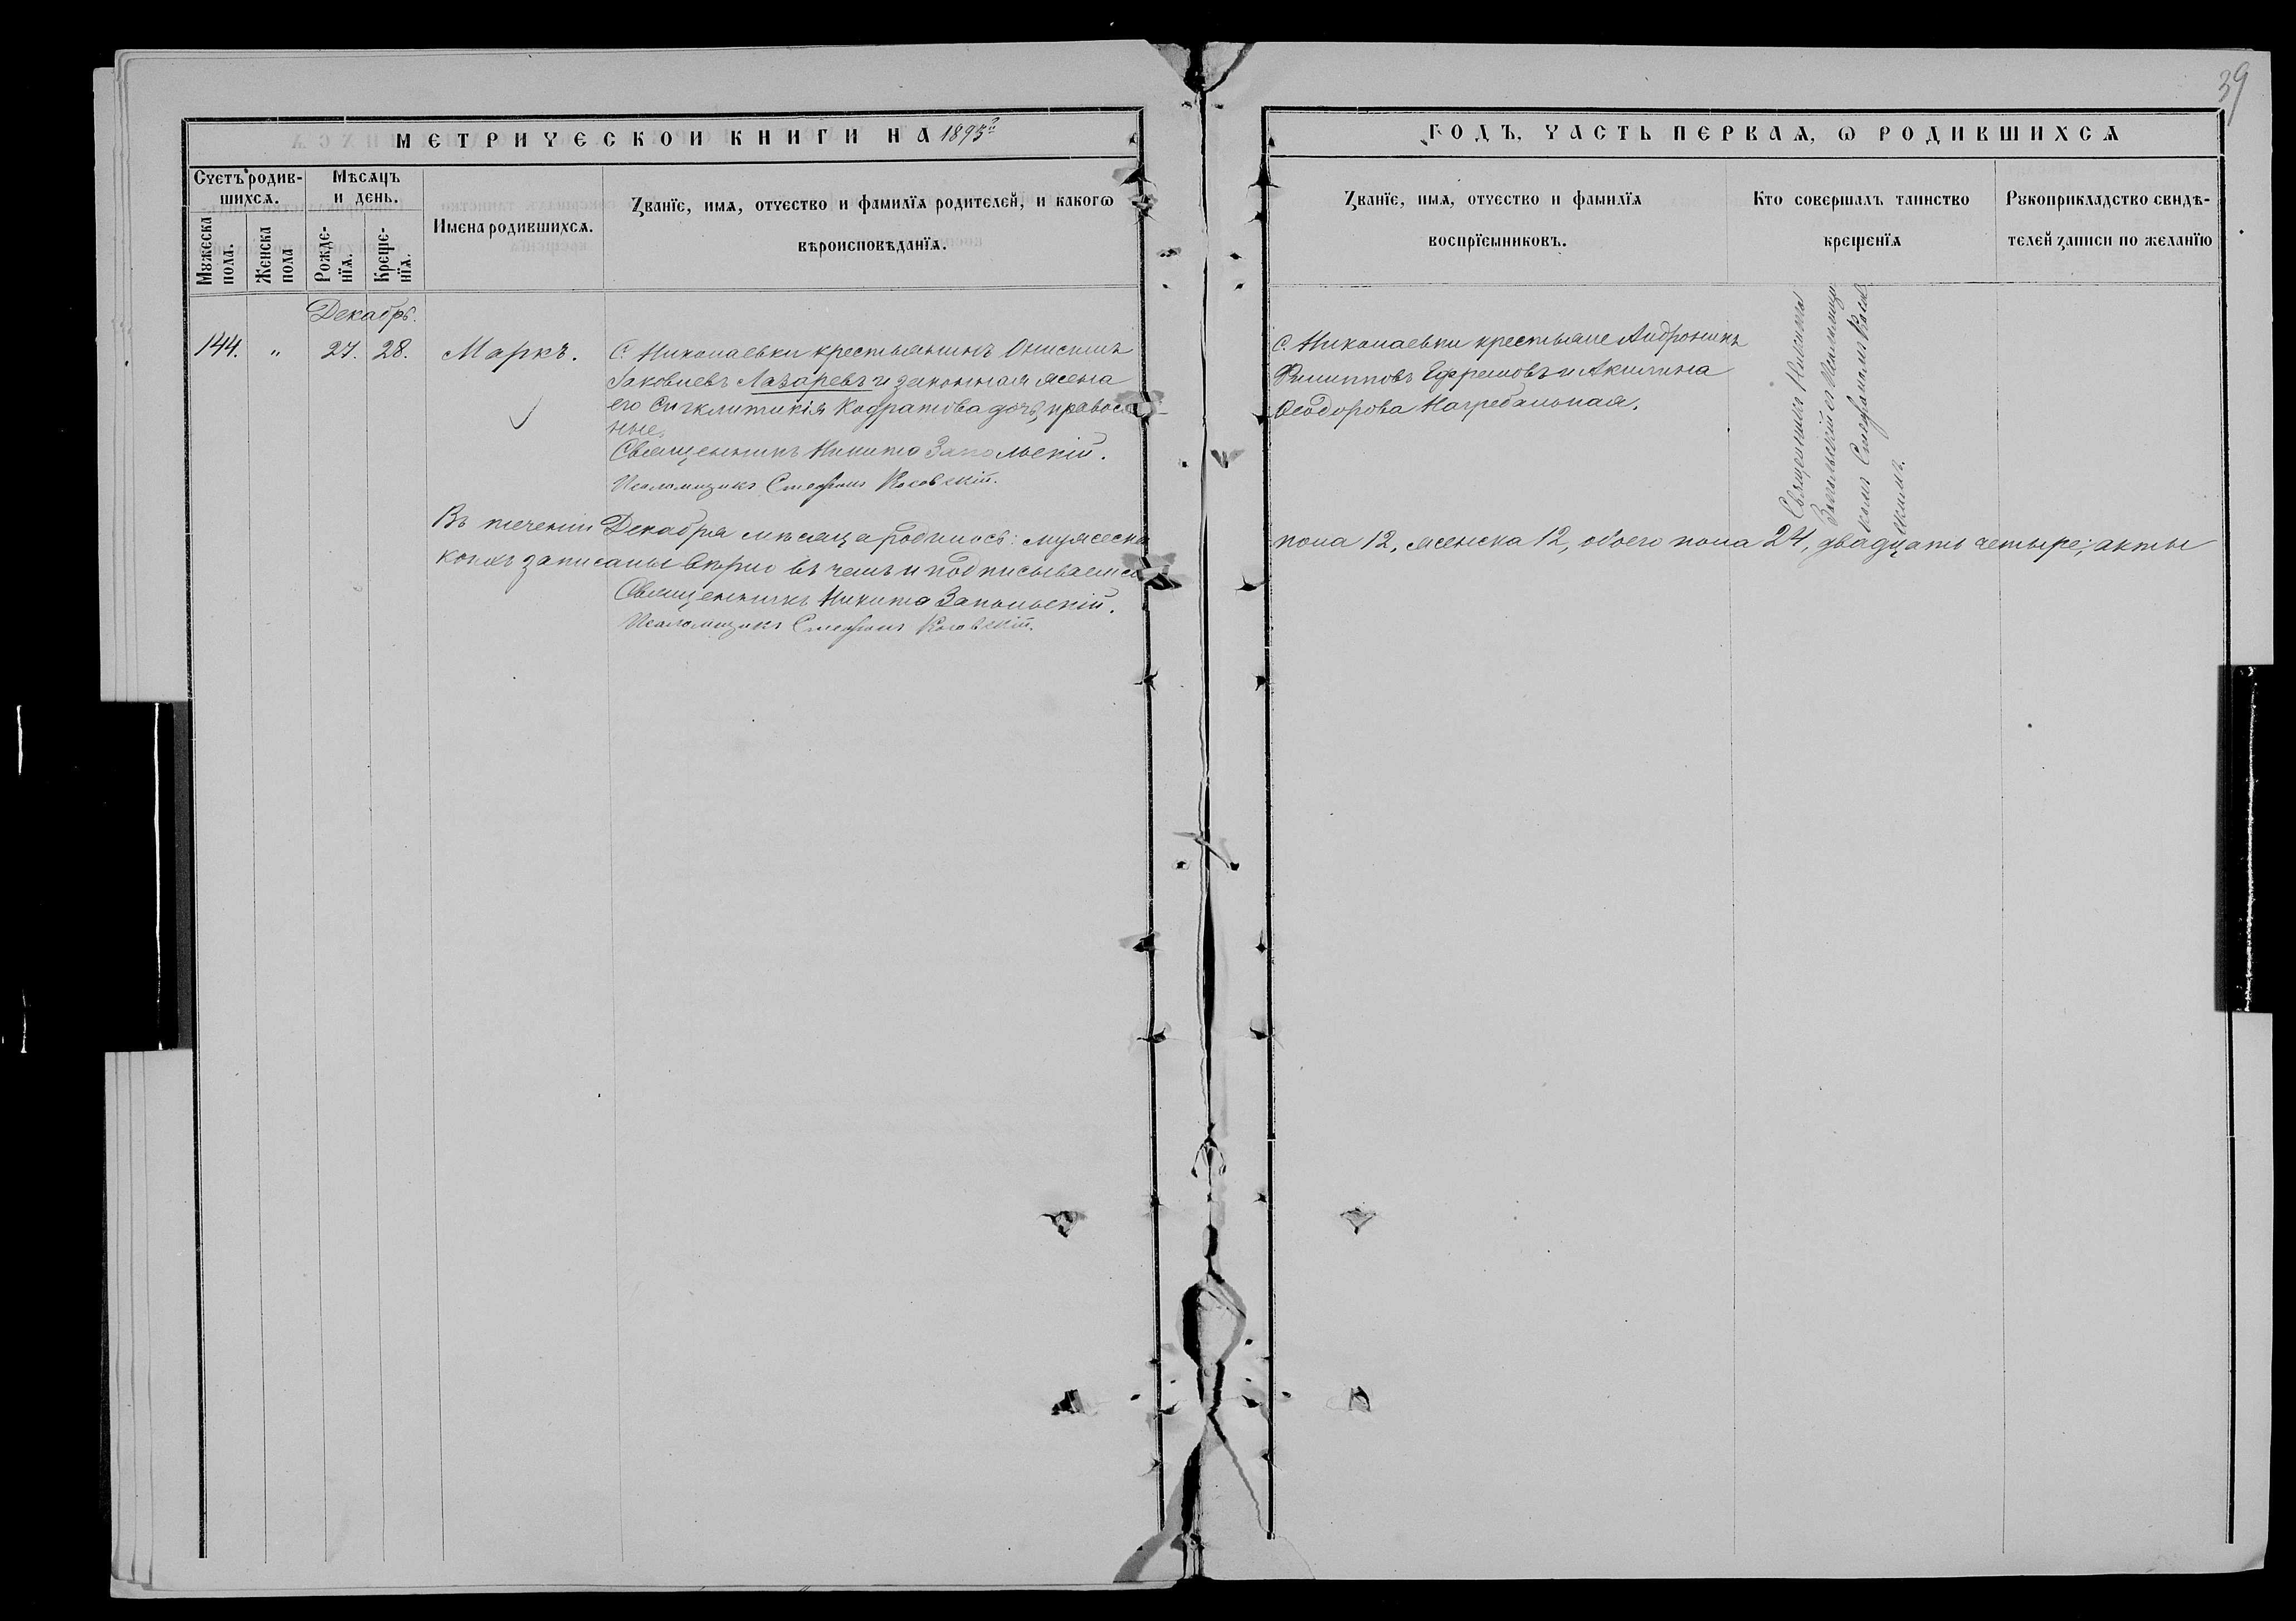 39
МЕТРИЧЕСКОЙ КНИГИ НА 1893й
ГОДЪ, ЧАСТЬ ПЕРВАѦ, Ѡ РОДИВШИХСѦ
Счетъ родив-
шихсѧ.
Мѣсѧцъ
и день.
Мꙋжеска
пола.
Женска
пола
Рожде-
нїѧ.
Креще-
нїѧ.
Имена родившихсѧ.
Ꙁванїе, имѧ, отчество и фамилїѧ родителей, и какогѡ
вѣроисповѣданїѧ.
Ꙁванїе, имѧ, отчество и фамилїѧ
воспрїемниковъ.
Кто совершалъ таинство
крещенїѧ
Рꙋкоприкладство свидѣ-
телей ꙁаписи по желанїю
Декабрь.
144. „ 27. 28. Маркъ.
С. Николаевки крестьянинъ Онисимъ
Іаковлевъ Лазаревъ и законная жена
его Сигклитикія Кодратова дочь, правосл
ные.
Священникъ Никита Запольскій.
Псаломщикъ Стефанъ Косовскій.
С. Николаевки крестьяне Андроникъ
Филипповъ Ефремовъ и Акилина
Ѳеодорова Нагребельная.
Священникъ Никита
Запольскій съ Псаломщи
комъ Стефаномъ Косов
скимъ.
Въ теченіи Декабря мѣсяца родилось: мужеска
пола 12, женска 12, обоего пола 24, двадцать четыре; акты
коихъ записаны вѣрно въ чемъ и подписываемся
Священникъ Никита Запольскій.
Псаломщикъ Стефанъ Косовскій.